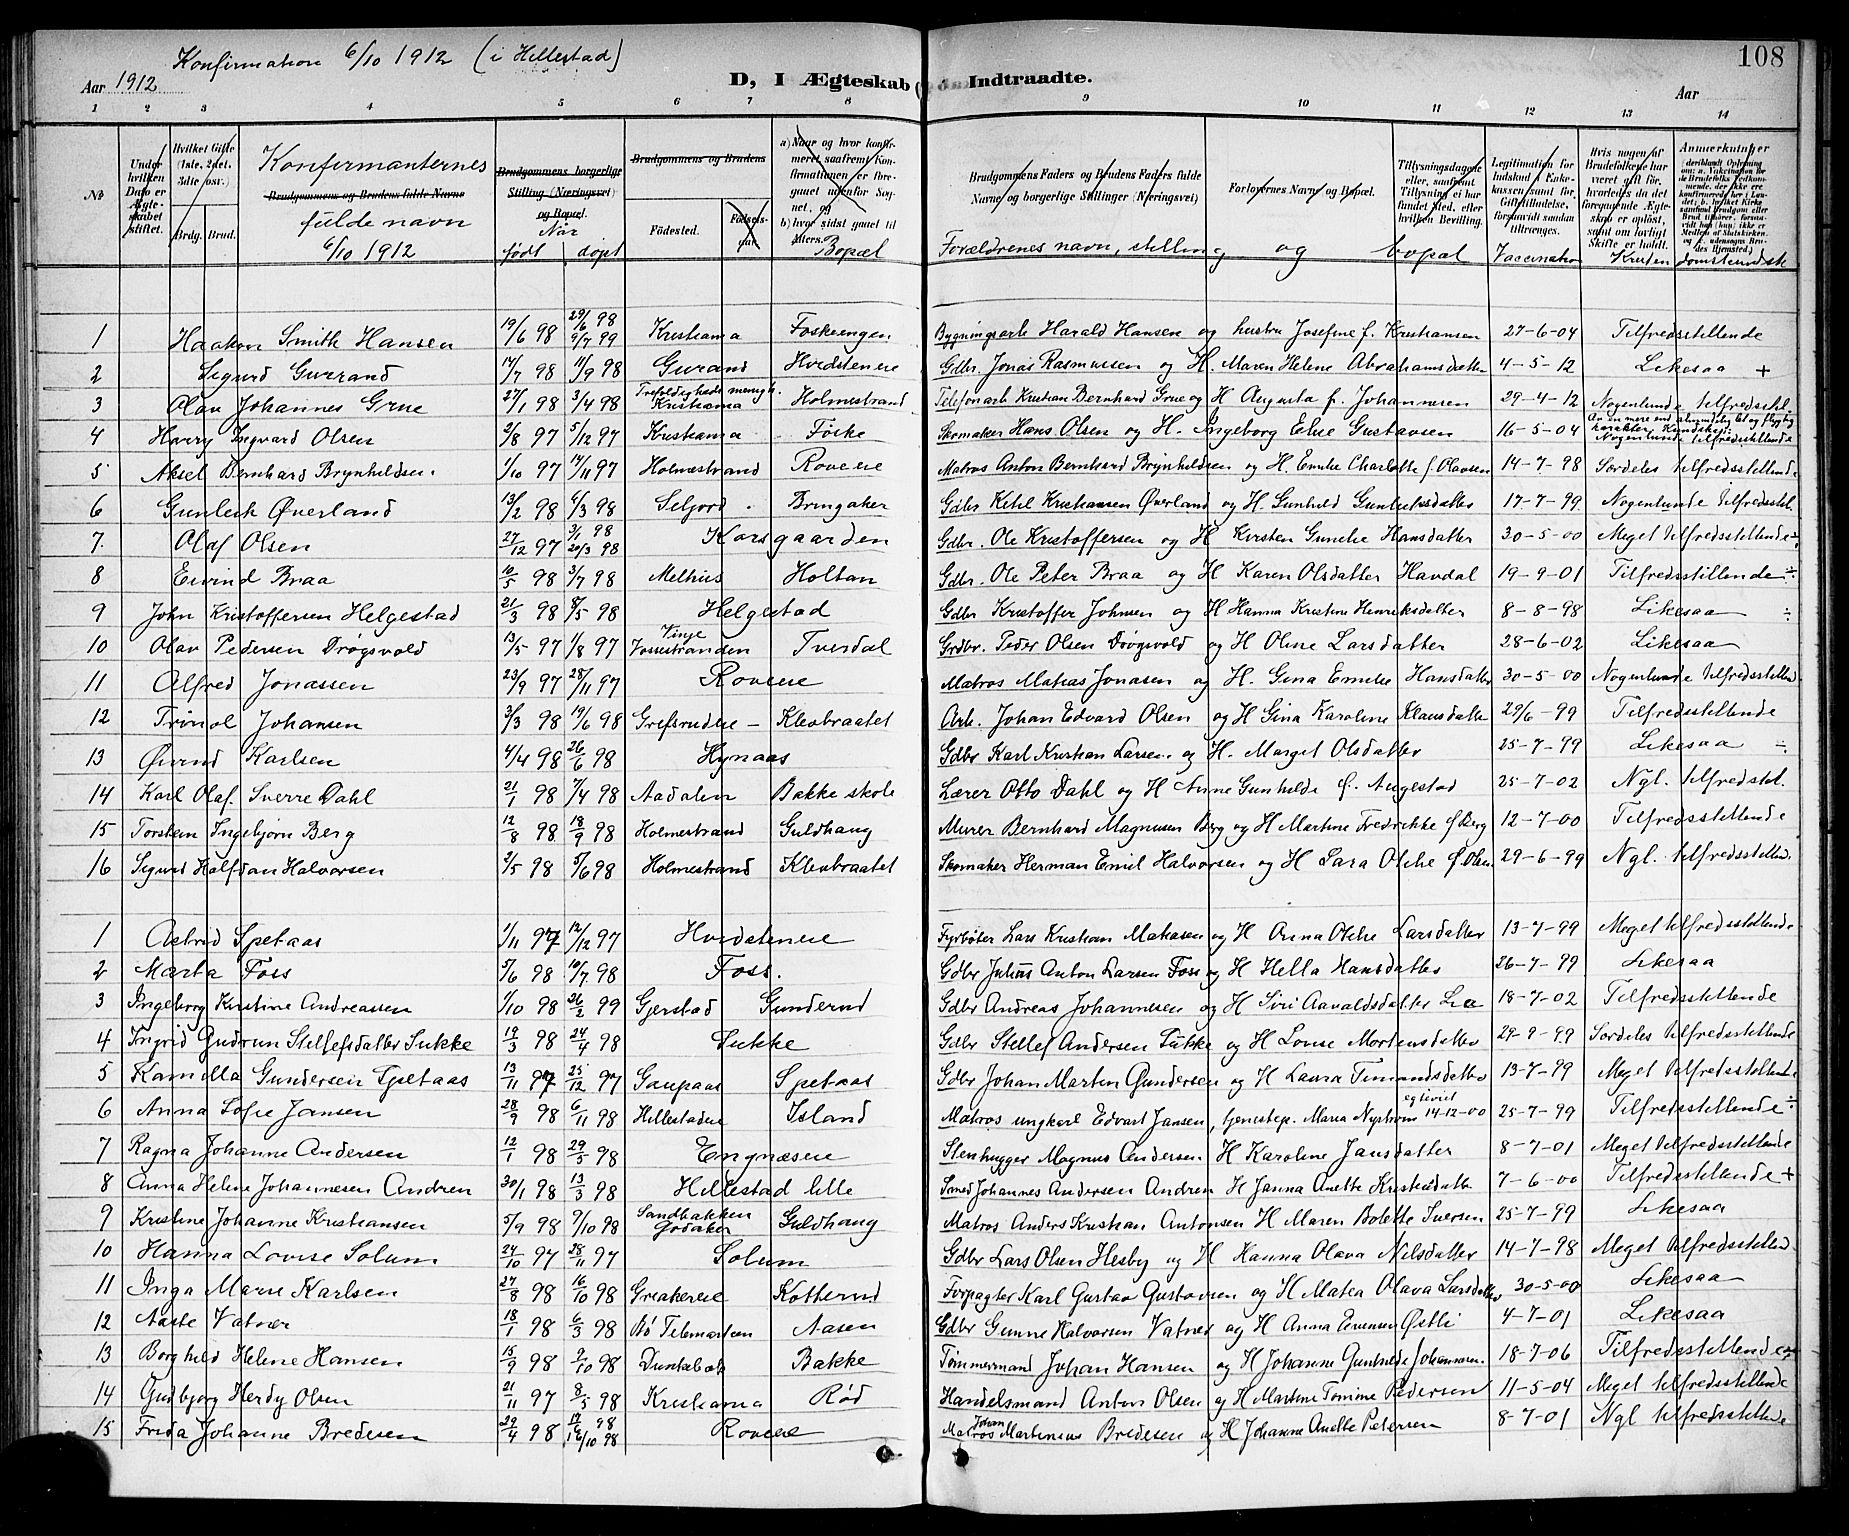 Konfirmation 6/10 1912 (i Hillestad)
108
Aar 1912
D, I Ægteskab Indtraadte.
Aar
1 2 3 4 5 6 7 8 9 10 11 12 13 14
No
Under hvilken Dato er Ægteskabet stiftet.
Hvilket Gifte (1ste, 2det, 3die osv.)
Brdg. Brud.
Konfirmanternes
Brudgommens og Brudens fulde Navne
fulde navn
6/10 1912
Brudgommens borgerlige Stilling (Næringsvei) og Bopæl.
Når
født døpt
Brudgommens og Brudens
Fødested. Fødselsaar
a) Naar og hvor konfirmeret saafremt Konfirmationen er foregaaet udenfor Sognet, og
b) hvor sidst gaaet til Alters.
Bopæl
Brudgommens Faders og Brudens Faders fulde Navne og borgerlige Stillinger (Næringsvei)
Forlovernes Navne og Bopæl.
Forældrenes navn, stilling og bopæl
Tillysningsdagene eller, saafremt Tillysning ei har fundet Sted, efter hvilken Bevilling.
Legitimation for Indskud i Enkekassen samt for Giftetilladelse, forsaavidt saadan tiltrænges.
Vaccination
Hvis nogen af Brudefolkene har været gift før, hvorledes da det foregaaende Ægteskab er opløst, samt om lovligt Skifte er holdt.
Anmerkninger
Kristendomskundsk
1 Haakon Smith Hansen 19/6 98 29/6 98 9/7 99 Kristiania Foskeengen Bygningsarb Harald Hansen og hustru Josefine f. Kristiansen 27-6-04 Tilfredsstillende
2 Sigurd Gurrand 17/7 98 11/9 98 Gurand Hvidsteneie Gdbr. Jonas Rasmussen og H. Maren Helene Abrahamsdatter 4-5-12 Likesaa +
3 Olav Johannes Grue 27/1 98 3/4 98 Trefoldigheds menigh. Kristiania Holmestrand Telefonarb Kristian Bernhard Grue og H Augusta f. Johannesen 29-4-12 Nogenlunde tilfredsst.
4 Harry Ingvard Olsen 2/8 97 5/12 97 Kristiania Føske Skomaker Hans Olsen og H. Ingeborg Elise Gustavsen 16-5-04 Nogenlunde tilfredsstillende
5 Aksel Bernhard Brynhildsen 1/10 97 14/11 97 Holmestrand Roveeie Matros Anton Bernhard Brynhildsen og H. Emilie Charlotte f. Olavsen 14-7-98 Særdeles tilfredsstillende
6 Gunleik Øverland 13/2 98 6/3 98 Seljord Bringaker Gdbr Ketil Kristiansen Øverland og H. Gunhild Gunleiksdatter 17-7-99 Nogenlunde tilfredsstil.
7. Olaf Olsen 27/12 97 3/1 98 20/3 98 Korsgaarden Gdbr. Ole Kristoffersen og H Kirsten Gunelie Hansdatter 30-5-00 Meget tilfredsstillende ÷
8 Eivind Braa 10/5 98 3/7 98 Melhus Holtan Gdbr. Ole Peter Braa og H Karen Olsdatter Havdal 19-9-01 Tilfredsstillende ÷
9 John Kristoffersen Helgestad 21/3 98 8/5 98 Helgestad Gdbr Kristoffer Johnsen og H Hanna Kristine Henriksdatter 8-8-98 Likesaa ÷
10 Olav Pedersen Drøgsvold 13/5 97 1/8 97 Vinje Tverdal Grdbr. Peder Olsen Drøgsvold og H Oline Larsdatter 28-6-02 Likesaa
11 Alfred Jonassen 23/9 97 28/11 97 Roveeie Matros Matias Jonasen og H. Gina Emelie Hansdatter 30-5-00 Nogenlunde tilfredsstillend.
12 Trinol Johansen 3/3 98 19/6 98 Grefsrudeie – Klevbraatet Arb. Johan Edvard Olsen og H Gina Karoline Klausdatter 29/6-99 Tilfredsstillende
13 Øivind Karlsen 4/4 98 26/6 98 Hynaas Gdbr Karl Kristian Larsen og H. Marget Olsdatter 25-7-99 Likesaa ÷
14 Karl Olaf Sverre Dahl 21/1 98 7/4 98 Aadalen Bakke skole Lærer Otto Dahl og H Anne Gunhilde f. Augestad 25-7-02 Ngl. tilfredsstil.
15 Torstein Ingebjørn Berg 12/8 98 18/9 98 Holmestrand Guldhaug Murer Bernhard Magnusen Berg og H Martine Fredrikke f Berg 12-7-00 Tilfredsstillende
16 Sigurd Halfdan Halvorsen 2/5 98 5/6 98 Holmestrand Klevbraatet Skomaker Herman Emil Halvorsen og H Sara Otilie f Olsen 29-6-99 Ngl. tilfredsstillend.
1 Astrid Spetaas 1/11 97 12/12 97 Hvidsteneie Fyrbøter Lars Kristian Matiasen og H Anna Otilie Larsdatter 13-7-99 Meget tilfredsstillende
2 Marta Foss 5/6 98 10/7 98 Foss. Gdbr Julius Anton Larsen Foss og H Hella Hansdatter 26-7-99 Likesaa
3 Ingeborg Kristine Andreassen 1/10 98 26/2 99 Gjerstad Gunderud Gdbr Andreas Johannesen og H Siri Aavaldsdatter Lia 18-7-02 Tilfredsstillende
4 Ingrid Gudrun Stellefsdatter Sukke 19/3 98 24/4 98 Sukke Gdbr Stellef Andersen Sukke og H Lovise Mortensdatter 29-9-99 Særdeles tilfredsstillende
5 Kamilla Gundersen Spetaas 13/11 97 25/12 97 Gaupaas Spetaas Gdbr Johan Martin Gundersen og H Laura Timandsdatter 13-7-99 Meget tilfredsstillende
6 Anna Sofie Jansen 28/9 98 6/11 98 Hillestadeie Island Matros ungkarl Edvart Jansen, Genestep. Maria Nystrøm egteviet 14-12-00 25-7-99 Tilfredsstillende ÷
7 Ragna Johanne Andersen 12/1 98 29/5 98 Engnæseie Stenhugger Magnus Andersen H Karoline Jansdatter 8-7-01 Meget tilfredsstillende
8 Anna Helene Johannesen Andren 30/1 98 13/3 98 Hillestad lille Smed Johannes Andersen Andren H Janna Anette Kristiansdatter 7-6-00 Tilfredsstillende +
9 Kristine Johanne Kristiansen 5/9 98 9/10 98 Sandbakken Godaker Guldhaug Matros Anders Kristian Antonsen H Maren Bolette Iversen 25-7-99 Likesaa
10 Hanna Lovise Solum 24/10 97 28/11 97 Solum Gdbr Lars Olsen Hesby og H Hanna Olava Nilsdatter 14-7-98 Meget tilfredsstillend.
11 Inga Marie Karlsen 27/8 98 16/10 98 Greakereie Kotterud Forpagter Karl Gustav Gustavsen og H Matea Olava Larsdatter 30-5-00 Likesaa
12 Aaste Vatner 18/1 98 6/3 98 Bø Telemarken Aasen Gdbr Gunne Halvorsen Vatner og H Anna Evensen Østli 4-7-01 Likesaa
13 Borghild Helene Hansen 15/9 98 9/10 98 Dunkebek Bakke Tømmermand Johan Hansen og H Johanne Gunhilde Johannesen 18-7-06 Tilfredsstillende
14 Gudbjorg Herdy Olsen 21/11 97 8/5 98 Kristiania Rød Handelsmand Anton Olsen og H Martine Tomine Pedersen 11-5-04 Meget tilfredsstillende
15 Frida Johanne Bredesen 29/4 98 19/6 98 16/10 98 Roveeie Matros Johan Martinius Bredesen og H Johanne Anette Petersen 8-7-01 Ngl tilfredsstillende